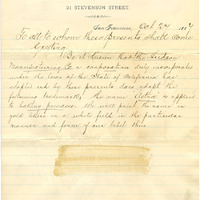 21 STEVENSON STREET.
San Francisco Oct 24 188
To all to whom these Presents shall come
Greeting
Be it known that the
Manufacturing Co a corporation duly incorporated
under the laws of the State of California has
adopted and by these presents does adopt the
following trademark, the name as applied
to baking powders. We will print the name in
gold letters on a white field in the particular
manner and form of our label thus